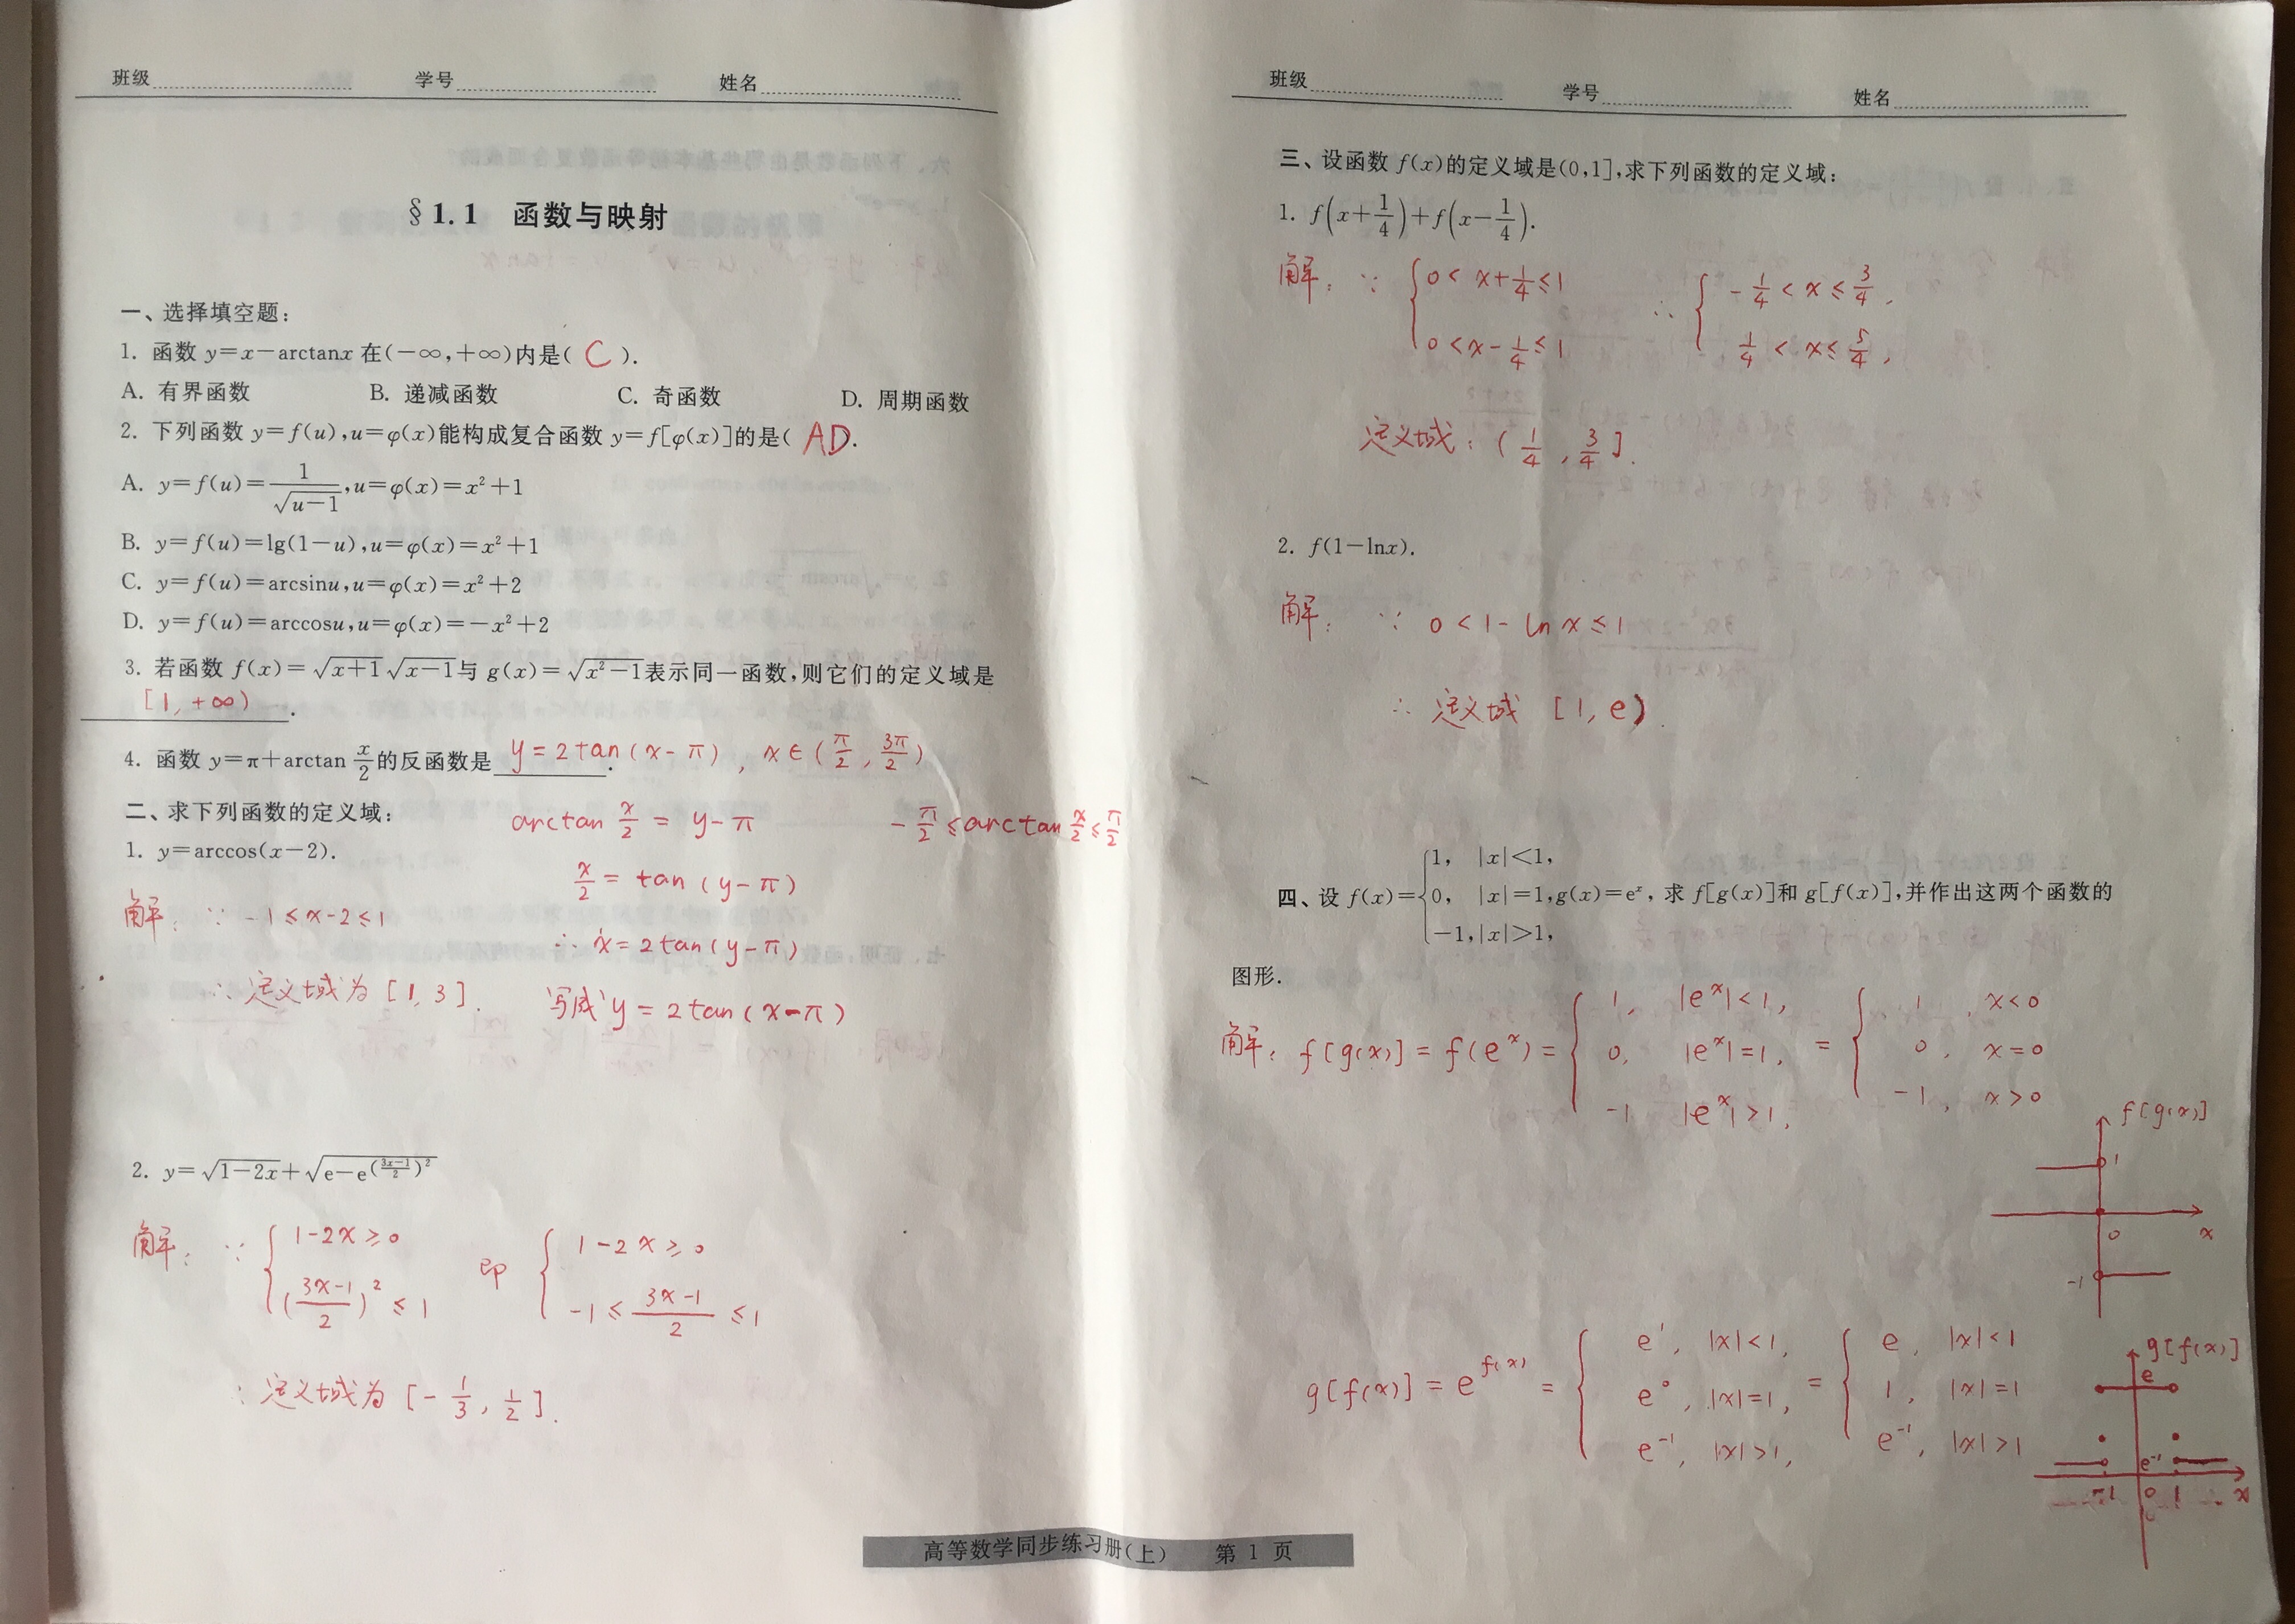 班级 学号 姓名
§1.1 函数与映射
一、选择填空题:
1. 函数 y=x-arctanx 在(-∞,+∞)内是( C ).
A. 有界函数 B. 递减函数 C. 奇函数 D. 周期函数
2. 下列函数 y=f(u),u=φ(x)能构成复合函数 y=f[φ(x)]的是( AD.
A. y=f(u)=1/√(u-1),u=φ(x)=x²+1
B. y=f(u)=lg(1-u),u=φ(x)=x²+1
C. y=f(u)=arcsinu,u=φ(x)=x²+2
D. y=f(u)=arccosu,u=φ(x)=-x²+2
3. 若函数 f(x)=√(x+1)√(x-1)与 g(x)=√(x²-1)表示同一函数,则它们的定义域是
[1,+∞).
4. 函数 y=π+arctan x/2 的反函数是 y=2tan(x-π), x∈(π/2, 3π/2).
二、求下列函数的定义域:
arctan x/2 = y-π -π/2≤arctan x/2≤π/2
1. y=arccos(x-2).
x/2 = tan(y-π)
解: ∵ -1≤x-2≤1
∴ x=2tan(y-π)
∴ 定义域为[1,3].
写成 y=2tan(x-π)
2. y=√(1-2x)+√(e-e^((3x-1)/2)²)
解: ∵ { 1-2x≥0 即 { 1-2x≥0
((3x-1)/2)²≤1 -1≤(3x-1)/2≤1
∴定义域为[-1/3, 1/2].
班级 学号 姓名
三、设函数 f(x)的定义域是(0,1],求下列函数的定义域:
1. f(x+1/4)+f(x-1/4).
解: ∵ { 0<x+1/4≤1 ∴ { -1/4<x≤3/4,
0<x-1/4≤1 1/4<x≤5/4,
定义域: (1/4, 3/4].
2. f(1-lnx).
解: ∵ 0<1-lnx≤1
∴ 定义域 [1,e).
四、设 f(x)={ 1, |x|<1,
0, |x|=1,g(x)=eˣ, 求 f[g(x)]和 g[f(x)],并作出这两个函数的
-1,|x|>1,
图形.
1, |eˣ|<1, 1, x<0
解: f[g(x)]=f(eˣ)={ 0, |eˣ|=1, ={ 0, x=0
-1 |eˣ|>1, -1, x>0
f[g(x)]
1
0 x
-1
e¹, |x|<1, e, |x|<1
g[f(x)]=e^f(x)={ e⁰, |x|=1, ={ 1, |x|=1
e⁻¹, |x|>1, e⁻¹, |x|>1
g[f(x)]
e
e⁻¹
-1 0 1 x
高等数学同步练习册(上) 第 1 页